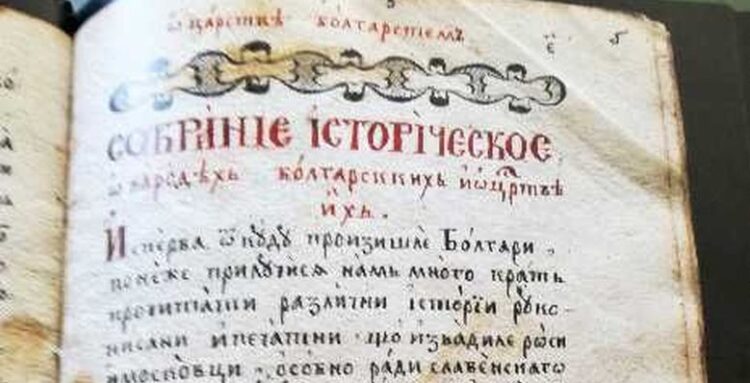 ѡ царствѣ болгарстемъ
є҃ 5
СОБРАНІЕ ІСТОРІЧЕСКОЕ
ѡ народѣхъ болгарскихъ и ѡ цартвѣ
ихъ.
Исперва ѿ куду произишле Болгари .
понеже прилучися намъ много кратъ
прочитати различни історіи рукс-
писани и печатани що извадиле руси
и московци . особно ради славенскаго